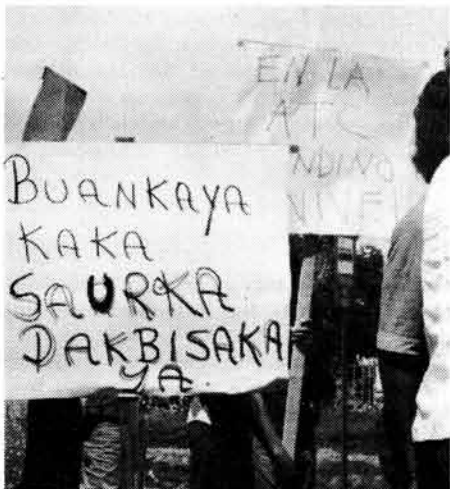 BUANKAYA
KAKA
SAURKA
DAKBISAKA
YA
EN LA
ATC
NDINO
VIVE